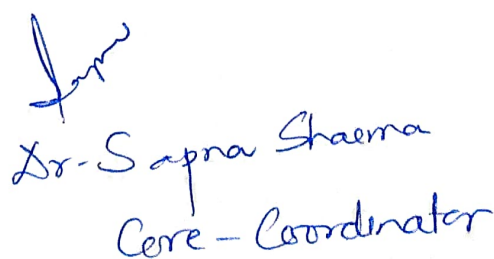 Dr-Sapna Sharma
Core-Coordinator